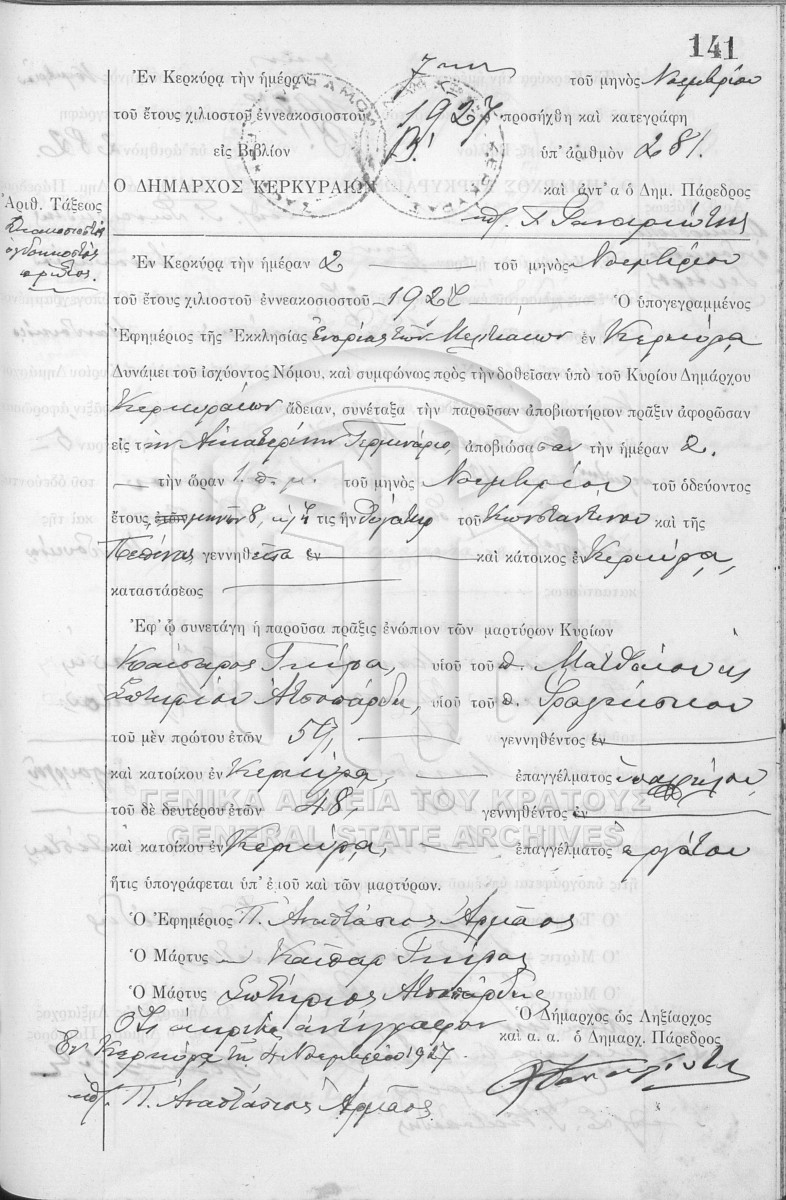 141
Ἐν Κερκύρᾳ τὴν ἡμέραν 7ην τοῦ μηνὸς Νοεμβρίου
τοῦ ἔτους χιλιοστοῦ ἐννεακοσιοστοῦ 1927 προσήχθη καὶ κατεγράφη
εἰς Βιβλίον Β' ὑπ' ἀριθμὸν 281.
Ο ΔΗΜΑΡΧΟΣ ΚΕΡΚΥΡΑΙΩΝ καὶ ἀντ' α ὁ Δημ. Πάρεδρος
Ἀριθ. Τάξεως
Διακοσιοστὸς
ὀγδοηκοστὸς
πρῶτος.
Ἐν Κερκύρᾳ τὴν ἡμέραν 2 τοῦ μηνὸς Νοεμβρίου
τοῦ ἔτους χιλιοστοῦ ἐννεακοσιοστοῦ 1927 Ὁ ὑπογεγραμμένος
Ἐφημέριος τῆς Ἐκκλησίας Ἐνορίας τῶν ἐν Κερκύρᾳ
Δυνάμει τοῦ ἰσχύοντος Νόμου, καὶ συμφώνως πρὸς τὴν δοθεῖσαν ὑπὸ τοῦ Κυρίου Δημάρχου
Κερκυραίων ἄδειαν, συνέταξα τὴν παροῦσαν ἀποβιωτήριον πρᾶξιν ἀφορῶσαν
εἰς τὴν Αἰκατερίνην ἀποβιώσασαν τὴν ἡμέραν 2.
τὴν ὥραν 1. π. μ. τοῦ μηνὸς Νοεμβρίου τοῦ ὁδεύοντος
ἔτους, ἐτῶν μηνῶν 8, τις ἦν θυγάτηρ τοῦ Κωνσταντίνου καὶ τῆς
γεννηθεῖσα ἐν καὶ κάτοικος ἐν Κερκύρᾳ,
καταστάσεως
Ἐφ' ᾧ συνετάγη ἡ παροῦσα πρᾶξις ἐνώπιον τῶν μαρτύρων Κυρίων
Καίσαρος Γκίρα, υἱοῦ τοῦ π. Ματθαίου κ
Σωτηρίου Ἀτσοπάρδη, υἱοῦ τοῦ π. Φραγκίσκου
τοῦ μὲν πρώτου ἐτῶν 59, γεννηθέντος ἐν
καὶ κατοίκου ἐν Κερκύρᾳ, ἐπαγγέλματος ὑπαλλήλου,
ΓΕΝΙΚΑ ΑΡΧΕΙΑ ΤΟΥ ΚΡΑΤΟΥΣ
τοῦ δὲ δευτέρου ἐτῶν 48, γεννηθέντος ἐν
GENERAL STATE ARCHIVES
καὶ κατοίκου ἐν Κερκύρᾳ, ἐπαγγέλματος ἐργάτου
ἥτις ὑπογράφεται ὑπ' ἐμοῦ καὶ τῶν μαρτύρων.
Ὁ Ἐφημέριος Π. Ἀναστάσιος Ἀρμᾶος
Ὁ Μάρτυς Καῖσαρ Γκίρας
Ὁ Μάρτυς Σωτήριος Ἀτσοπάρδης
Ὅτι ἀκριβὲς ἀντίγραφον
Ἐν Κερκύρᾳ τῇ 4 Νοεμβρίου 1927
Π. Ἀναστάσιος Ἀρμᾶος
Ὁ Δήμαρχος ὡς Ληξίαρχος
καὶ α. α. ὁ Δημαρχ. Πάρεδρος